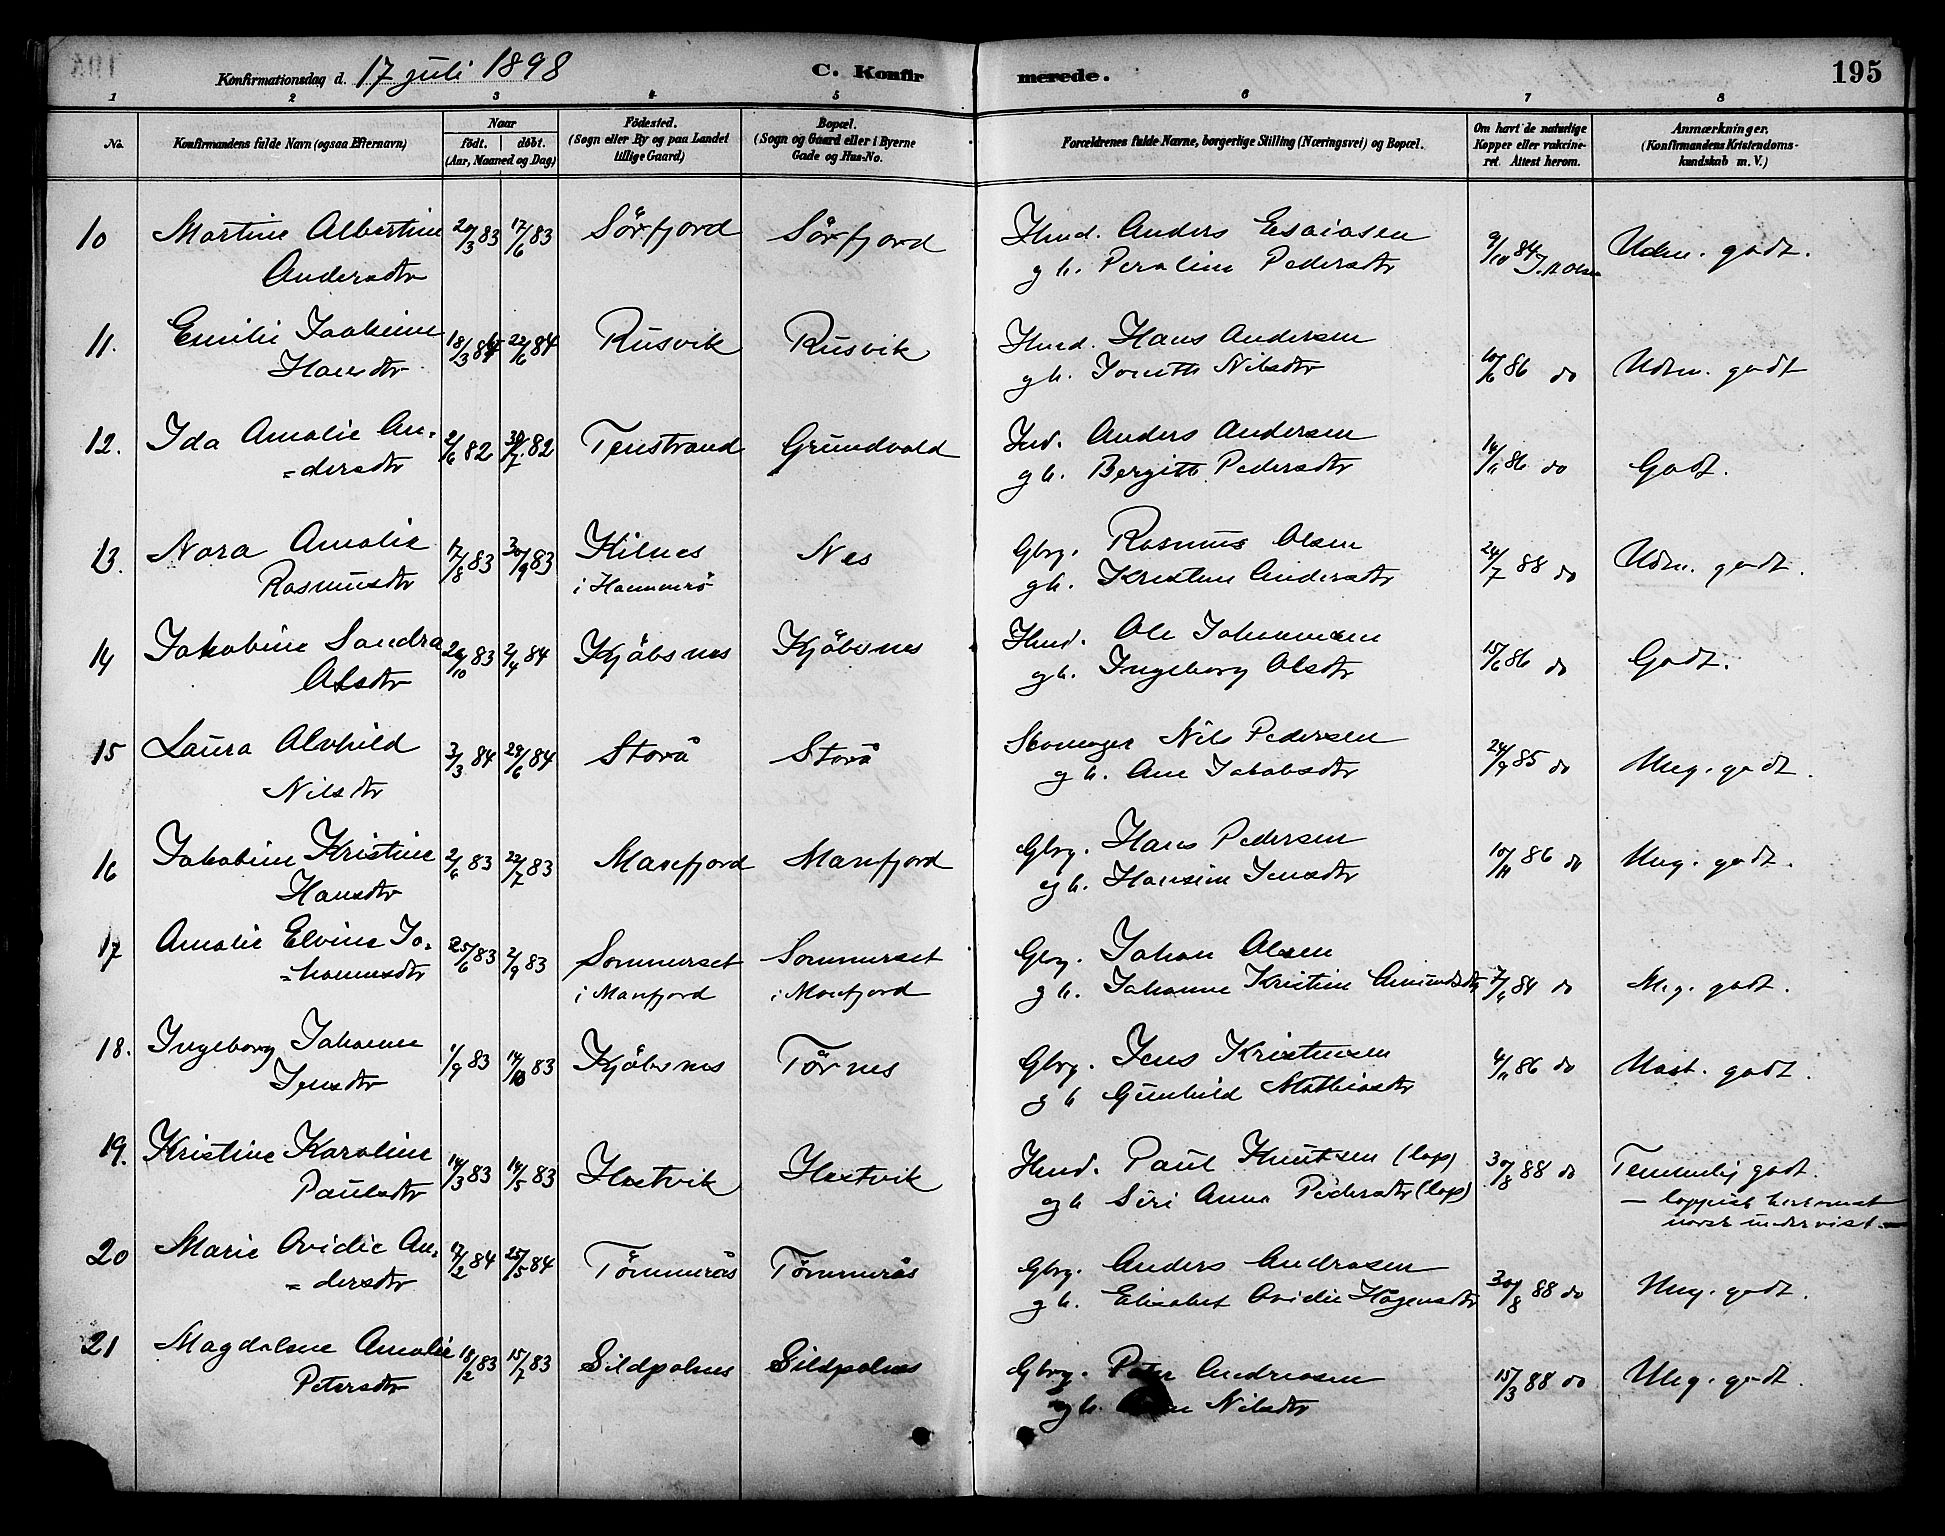 Konfirmationsdag d. 17 juli 1898 C. Konfirmerede. 195
1 2 3 4 5 6 7 8
No. Konfirmandens fulde Navn (ogsaa Efternavn) Naar födt. döbt. (Aar, Maaned og Dag) Födested. (Sogn eller By og paa Landet tillige Gaard) Bopæl. (Sogn og Gaard eller i Byerne Gade og Hus-No. Forældrenes fulde Navne, borgerlige Stilling (Næringsvei) og Bopæl. Om havt de naturlige Kopper eller vakcineret. Attest herom. Anmærkninger. (Konfirmandens Kristendomskundskab m. V.)
10 Martine Albertine 20/3 83 17/6 83 Sörfjord Sörfjord Hmd. Anders Esaiasen 9/10 84 Udm. godt.
Andersdtr gh. Peroline Pedersdtr
11. Emilie Joakime 18/3 84 22/6 84 Rusvik Rusvik Hmd. Hans Andersen 10/6 86 do Udm. godt
Hansdtr gh. Nilsdtr
12. Ida Amalie An- 2/6 82 30/7 82 Tenstrand Grundvold Ind. Anders Andersen 14/11 86 do Godt.
=dersdtr gh. Bergitte Pedersdtr
13. Nora Amalie 17/8 83 30/9 83 Hilnes Nes Gbrg. Rasmus Olsen 24/7 88 do Udm. godt.
Rasmusdtr i Hammerö gh. Kristine Andersdtr
14 Jakobine Sandra 20/10 83 2/4 84 Kjöbsnes Kjöbsnes Hmd. Ole Johannesen 15/6 86 do Godt.
Olsdtr gh. Ingeborg Olsdtr
15 Laura Alvhild 3/3 84 29/6 84 Storå Storå Skomager Nils Pedersen 24/9 85 do Meg. godt.
Nilsdtr gh. Ane Jakobsdtr
16 Jakobine Kristine 2/6 83 22/7 83 Manfjord Manfjord Gbrg. Hans Pedersen 10/11 86 do Meg. godt.
Hansdtr gh. Hansine Jensdtr
17 Amalie Elvine Jo- 25/6 83 2/9 83 Sommerset Sommerset Gbrg. Johan Olsen
=hannesdtr i Manfjord i Manfjord gh. Johanne Kristine Amundsdtr 84 do Meg. godt.
18. Ingeborg Johanne 1/9 83 14/10 83 Kjöbsnes Törnes Gbrg. Jens Kristensen 4/11 86 do Mast. godt.
Jensdtr gh Gunhild Mathiasdtr
19. Kristine Karoline 14/3 83 14/5 83 Hestvik Hestvik Hmd. Paul Knutsen (lap) 30/8 88 do Temmelig godt.
Paulsdtr gh Siri Anna Pedersdtr (lap) — lappisk
norsk undervist —
20 Marie Ovidie An- 17/2 84 25/5 84 Tömmerås Tömmerås Gbrg. Anders Andreasen 30/8 88 do Meg. godt.
=dersdtr gh. Elisabet Ovidie Hågensdtr
21 Magdalene Amalie 18/2 83 15/7 83 Sildpolnes Sildpolnes Gbrg. Peter Andreasen 15/3 88 do Meg. godt.
Petersdtr gh. Nilsdtr